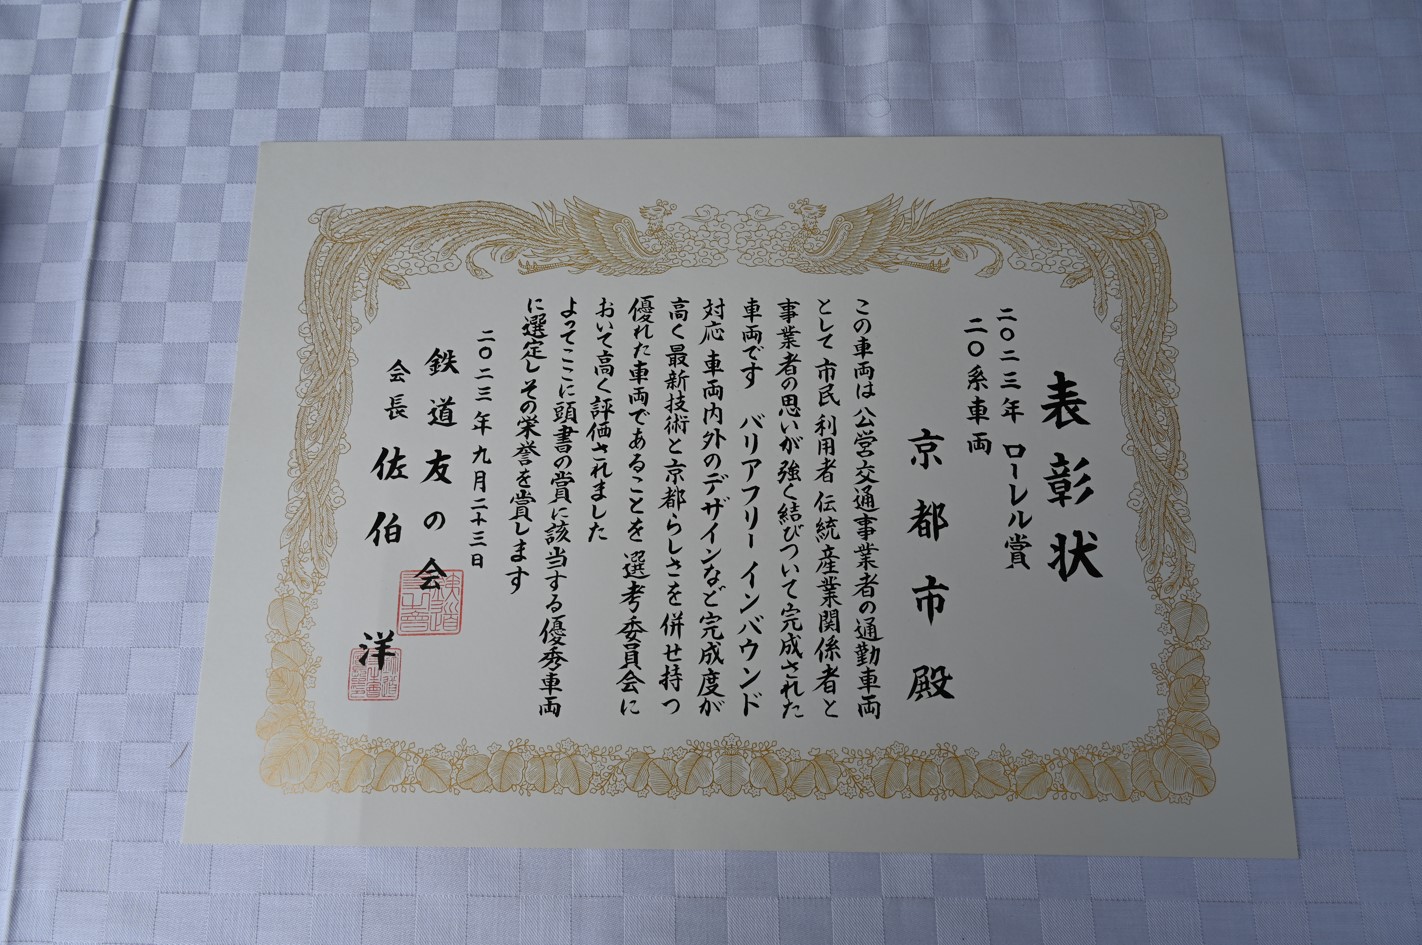 表彰状
二〇二三年 ローレル賞
二〇系車両
京都市殿
この車両は 公営交通事業者の通勤車両
として 市民 利用者 伝統産業関係者と
事業者の思いが強く結びついて完成された
車両です バリアフリー インバウンド
対応 車両内外のデザインなど完成度が
高く最新技術と京都らしさを併せ持つ
優れた車両であることを 選考委員会に
おいて高く評価されました
よってここに頭書の賞に該当する優秀車両
に選定し その栄誉を賞します
二〇二三年九月二十三日
鉄道友の会
会長 佐伯 洋